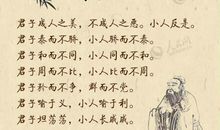 君子成人之美，不成人之恶。小人反是。
君子泰而不骄，小人骄而不泰。
君子和而不同，小人同而不和。
君子周而不比，小人比而不周。
君子矜而不争，群而不党。
君子喻于义，小人喻于利。
君子坦荡荡，小人长戚戚。